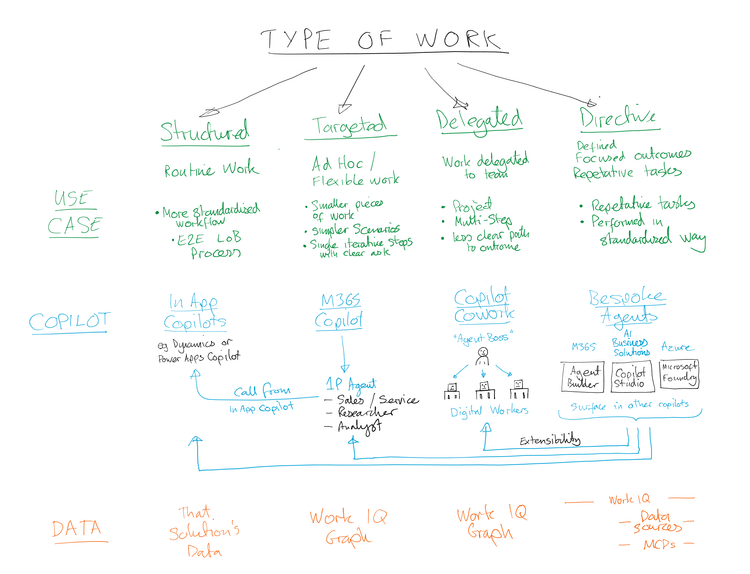 TYPE OF WORK
Structured
Targeted
Delegated
Directive
USE
CASE
Routine Work
• More standardised
workflow
• E2E LoB
Process
Ad Hoc /
Flexible work
• Smaller pieces
of work
• Simpler Scenarios
• Single iterative steps
with clear ask
Work delegated
to team
• Project
• Multi-Step
• less clear path
to outcome
Defined
Focused outcomes
Repetative tasks
• Repetative tasks
• Performed in
standardised way
COPILOT
In App
Copilots
eg Dynamics or
Power Apps Copilot
M365
Copilot
Call from
In App Copilot
1P Agent
— Sales / Service
— Researcher
— Analyst
Copilot
Cowork
"Agent Boss"
Digital Workers
Bespoke
Agents
M365
AI
Business
Solutions
Azure
Agent
Builder
Copilot
Studio
Microsoft
Foundry
Surface in other copilots
Extensibility
DATA
That
Solution's
Data
Work IQ
Graph
Work IQ
Graph
— Work IQ —
— Data
Sources —
— MCPs —